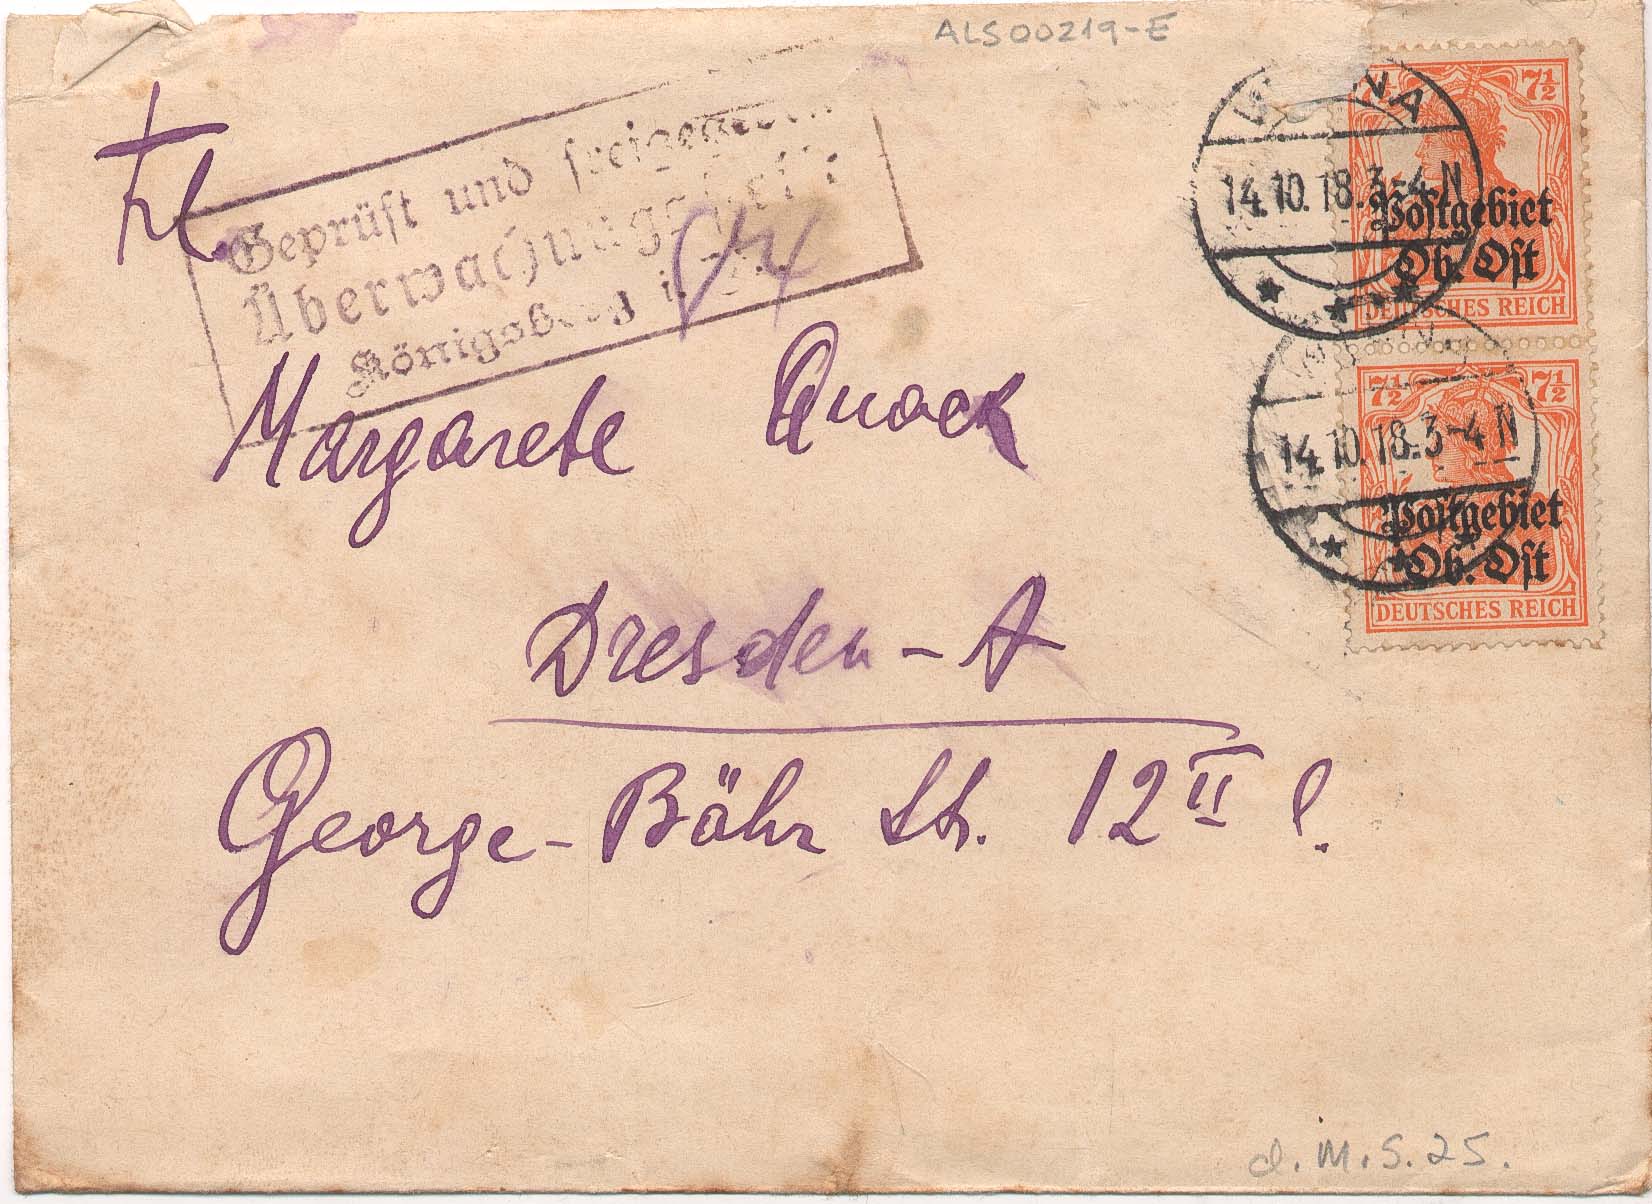 ALS00219-E
Frl.
Geprüft und freigegeben
Überwachungsstelle
Königsberg i. Pr.
7½
14.10.18.3-4 N
Postgebiet
Ob. Ost
DEUTSCHES REICH
7½ 7½
14.10.18.3-4 N
Postgebiet
Ob. Ost
DEUTSCHES REICH
Margarete Quack
Dresden-A
George-Bähr Str. 12 II l.
d. M. S. 25.